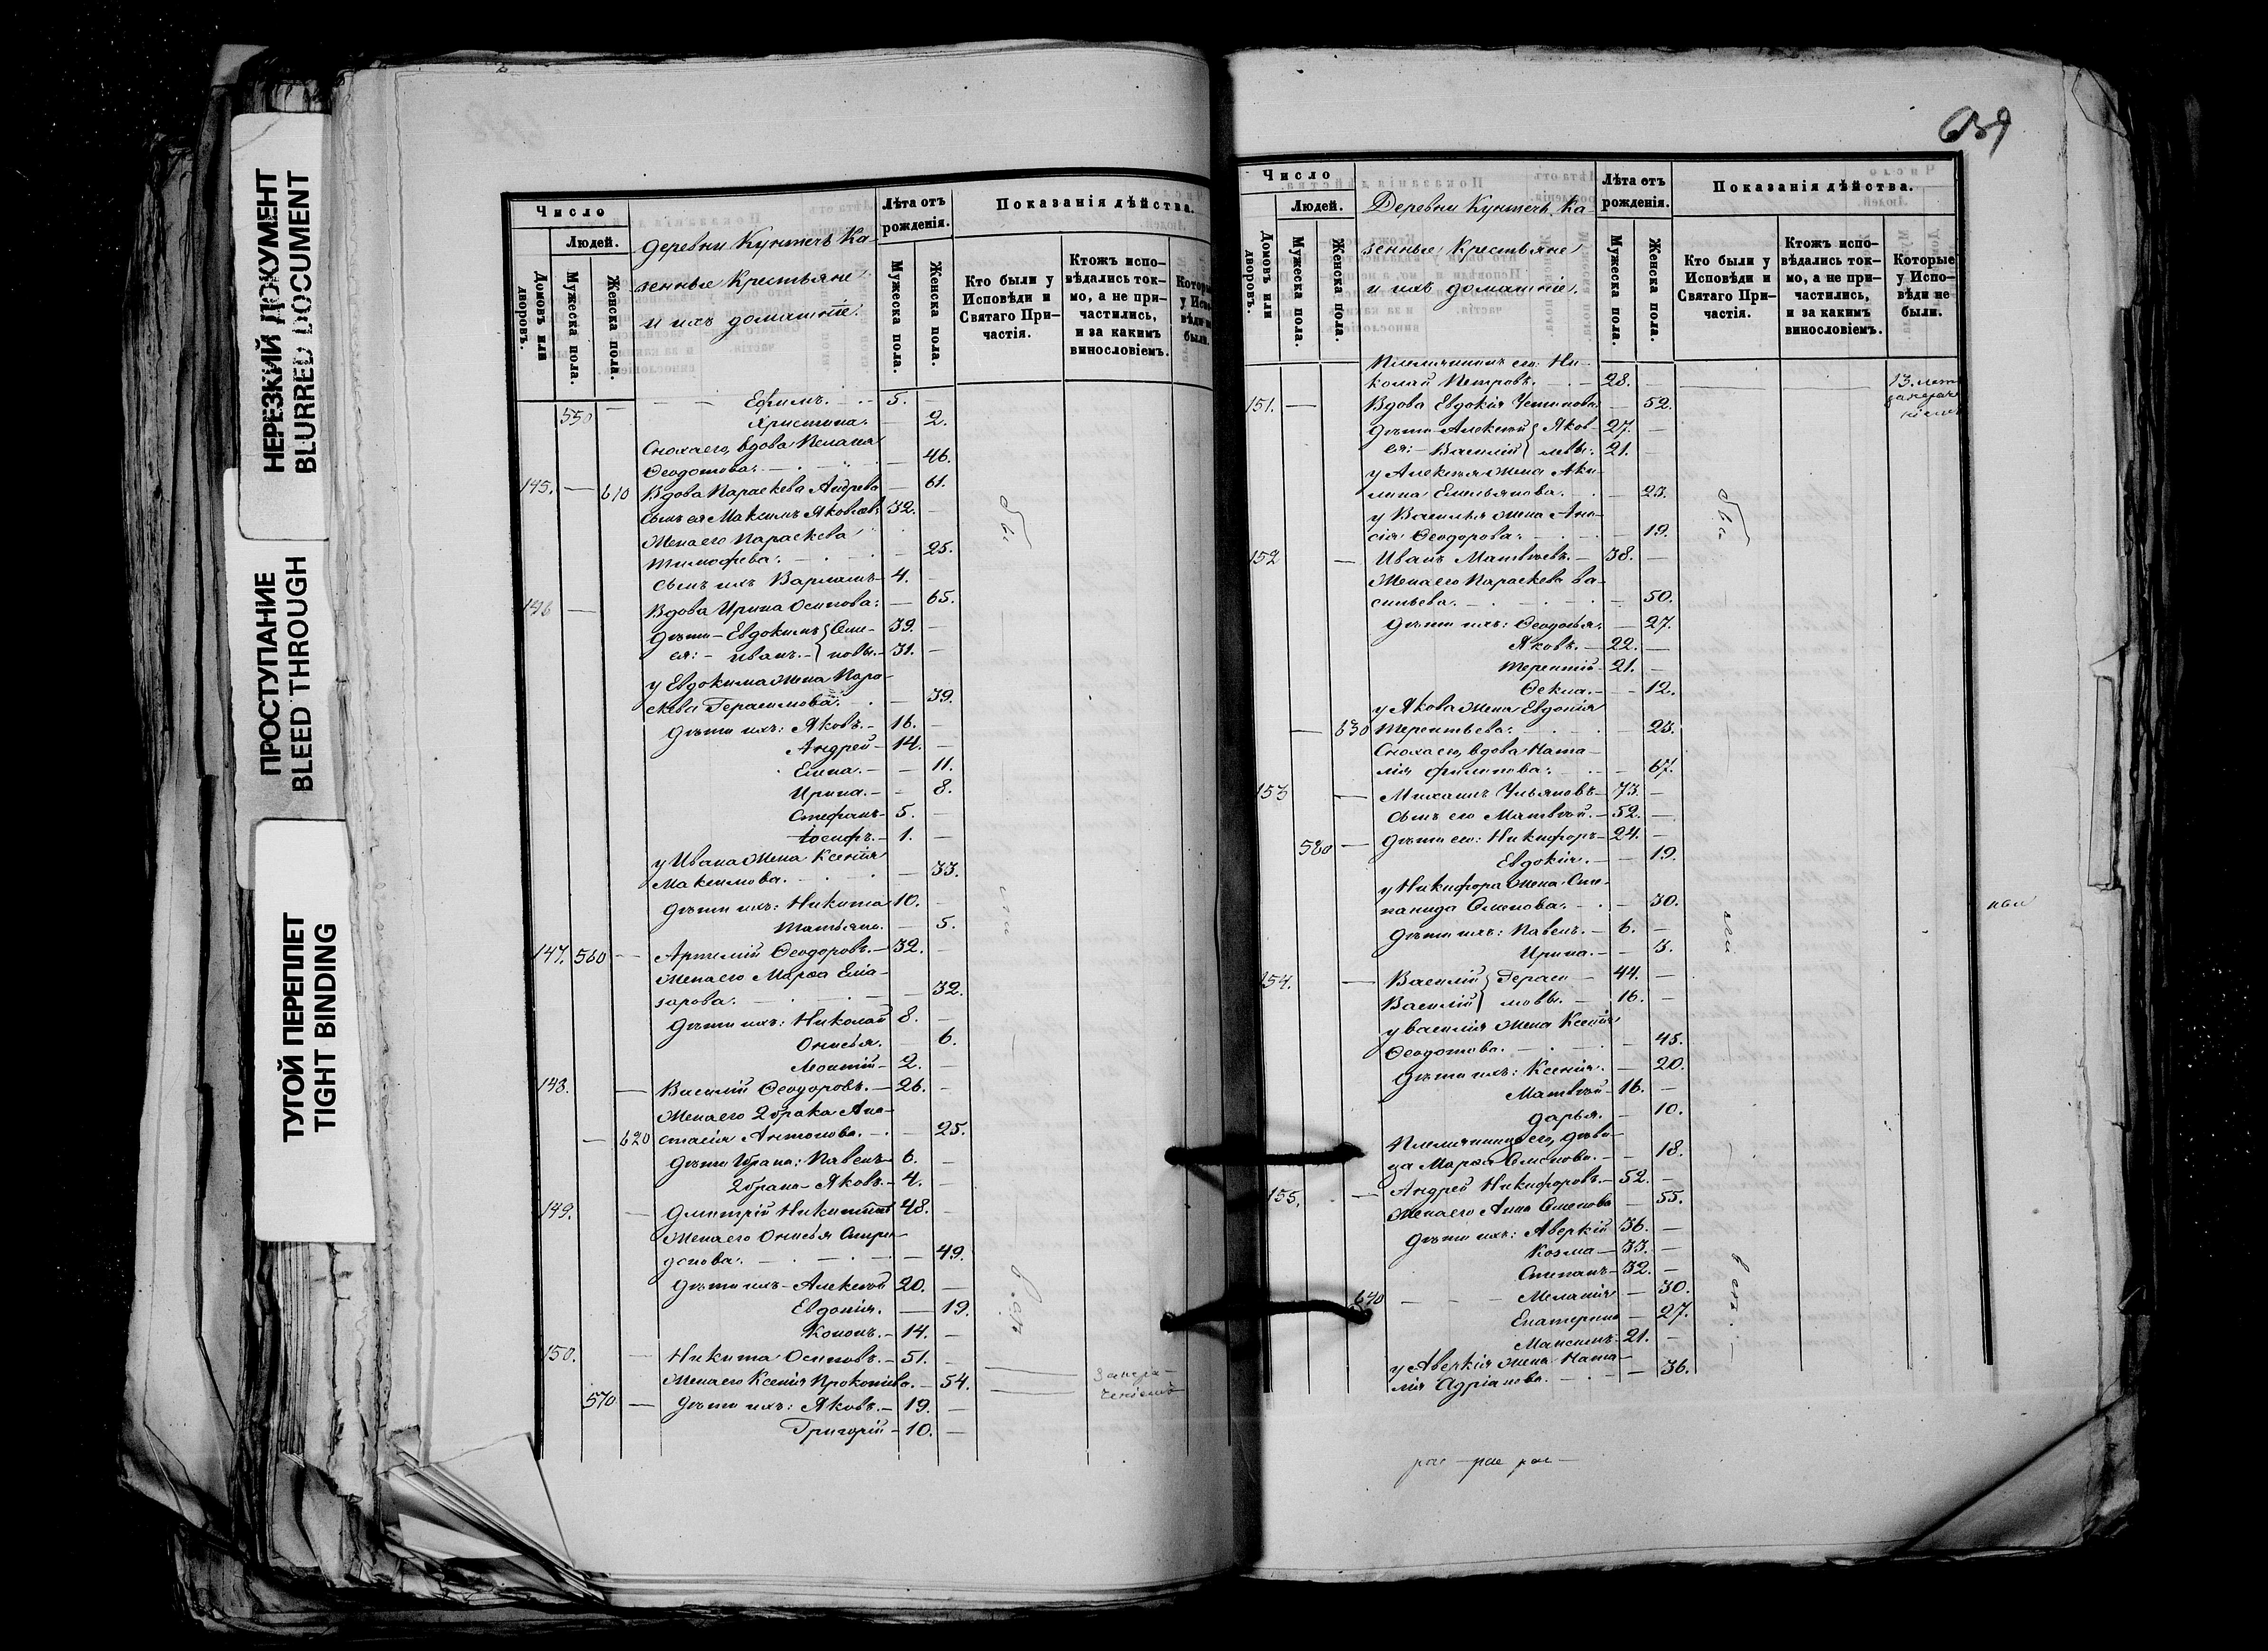 НЕРЕЗКИЙ ДОКУМЕНТ
BLURRED DOCUMENT
ПРОСТУПАНИЕ
BLEED THROUGH
ТУГОЙ ПЕРЕПЛЕТ
TIGHT BINDING
Число
Людей.
Домовъ или дворовъ.
Мужеска пола.
Женска пола.
Деревни Кунтечь Ка-
зенные Крестьяне
и ихъ домашніе.
Лѣта отъ рожденія.
Мужеска пола.
Женска пола.
Показанія дѣйства.
Кто были у Исповѣди и Святаго При-частія.
Ктожъ испо-вѣдались ток-мо, а не при-частились, и за какимъ винословіемъ.
550 — Ефимъ. 5. —
Христина. — 2.
Сноха его, вдова Пелагея
Ѳеодотова. — 46.
145. — 610 Вдова Параскева Андреева — 61.
Сынъ ея Максимъ Яковлевъ 32. —
Жена его Параскева
Тимофеева. — 25.
Сынъ ихъ Варлаамъ 4. —
146 — Вдова Ирина Осипова. — 65.
Дѣти Евдокимъ } Семе- 39. —
ея: Иванъ. } новы. 31. —
у Евдокима Жена Пара-
скева Герасимова. — 39.
Дѣти ихъ: Яковъ. 16. —
Андрей 14. —
Елена. — 11.
Ирина. — 8.
Стефанъ 5. —
Іосифъ. 1. —
у Ивана Жена Ксенія
Максимова. — 33.
Дѣти ихъ: Никита 10. —
Татьяна. — 5.
147. 560 — Артемій Ѳеодоровъ. 32. —
Жена его Марѳа Ела-
зарова. — 32.
Дѣти ихъ: Николай 8. —
Онисья. — 6.
2. —
148. — Василій Ѳеодоровъ. 26. —
Жена его 2 брака Ана-
— 620 стасія Антонова. — 25.
Дѣти 1 брака: Павелъ 6. —
2 брака Яковъ. 4. —
149. — Дмитрій Никитинъ 48. —
Жена его Онисья Спири-
донова. — 49.
Дѣти ихъ Алексѣй 20. —
Евдокія. — 19.
Кононъ. 14. —
150. — Никита Осиповъ. 51. —
Жена его Ксенія Прокопіева. — 54.
570 — Дѣти ихъ: Яковъ. 19. —
Григорій 10. —
Число
Людей.
Домовъ или дворовъ.
Мужеска пола.
Женска пола.
Деревни Кунтечь Ка-
зенные Крестьяне
и ихъ домашніе.
Лѣта отъ рожденія.
Мужеска пола.
Женска пола.
Показанія дѣйства.
Кто были у Исповѣди и Святаго При-частія.
Ктожъ испо-вѣдались ток-мо, а не при-частились, и за какимъ винословіемъ.
Которые у Испо-вѣди не были.
Племянникъ его: Ни-
колай Петровъ. 28. —
151. — Вдова Евдокія Устинова — 52.
Дѣти Алексѣй } Яков- 27. —
ея: Василій } левы. 21. —
у Алексѣя Жена Аки-
лина Емельянова. — 23.
у Василья Жена Ани-
сія Ѳеодорова. — 19.
152 — Иванъ Матвѣевъ. 38. —
Жена его Параскева Ва-
сильева. — 50.
Дѣти ихъ: Ѳеодосья. — 27.
Яковъ. 22. —
Терентій 21. —
Ѳекла. — 12.
у Якова Жена Евдокія
— 630 Терентьева. — 23.
Сноха его, вдова Ната-
лія Филипова. — 67.
153 — Михаилъ Ульяновъ 73. —
Сынъ его Матвѣй. 52. —
580 — Дѣти его: Никифоръ 24. —
Евдокія. — 19.
у Никифора Жена Сте-
панида Семенова. — 30.
Дѣти ихъ: Павелъ. 6. —
Ирина. — 3.
154. — Василій } Гераси- 44. —
Василій } мовы. 16. —
у Василія Жена Ксенія
Ѳеодотова. — 45.
Дѣти ихъ: Ксенія. — 20.
Матвѣй 16. —
Дарья. — 10.
Племянница его, дѣви-
ца Марѳа Семенова. — 18.
155. — Андрей Никифоровъ. 52. —
Жена его Анна Семенова — 55.
Дѣти ихъ: Аверкій 36. —
Козма 33. —
Степанъ 32. —
640 Меланія — 30.
Екатерина — 27.
Максимъ 21. —
у Аверкія Жена Ната-
лія Адріанова. — 36.